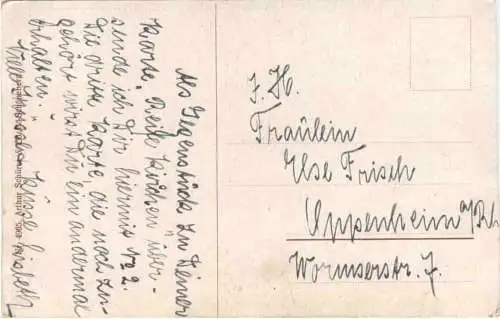 Als Gegenstück zu Deiner
Karte "Reife Kirschen" über-
sende ich Dir hiermit No 2.
Die dritte Karte, die noch zu-
gehört wirst Du ein andermal
erhalten.
Viele Küsse
J. H.
Fräulein
Else Frisch
Oppenheim a/Rh
Wormserstr. 7.